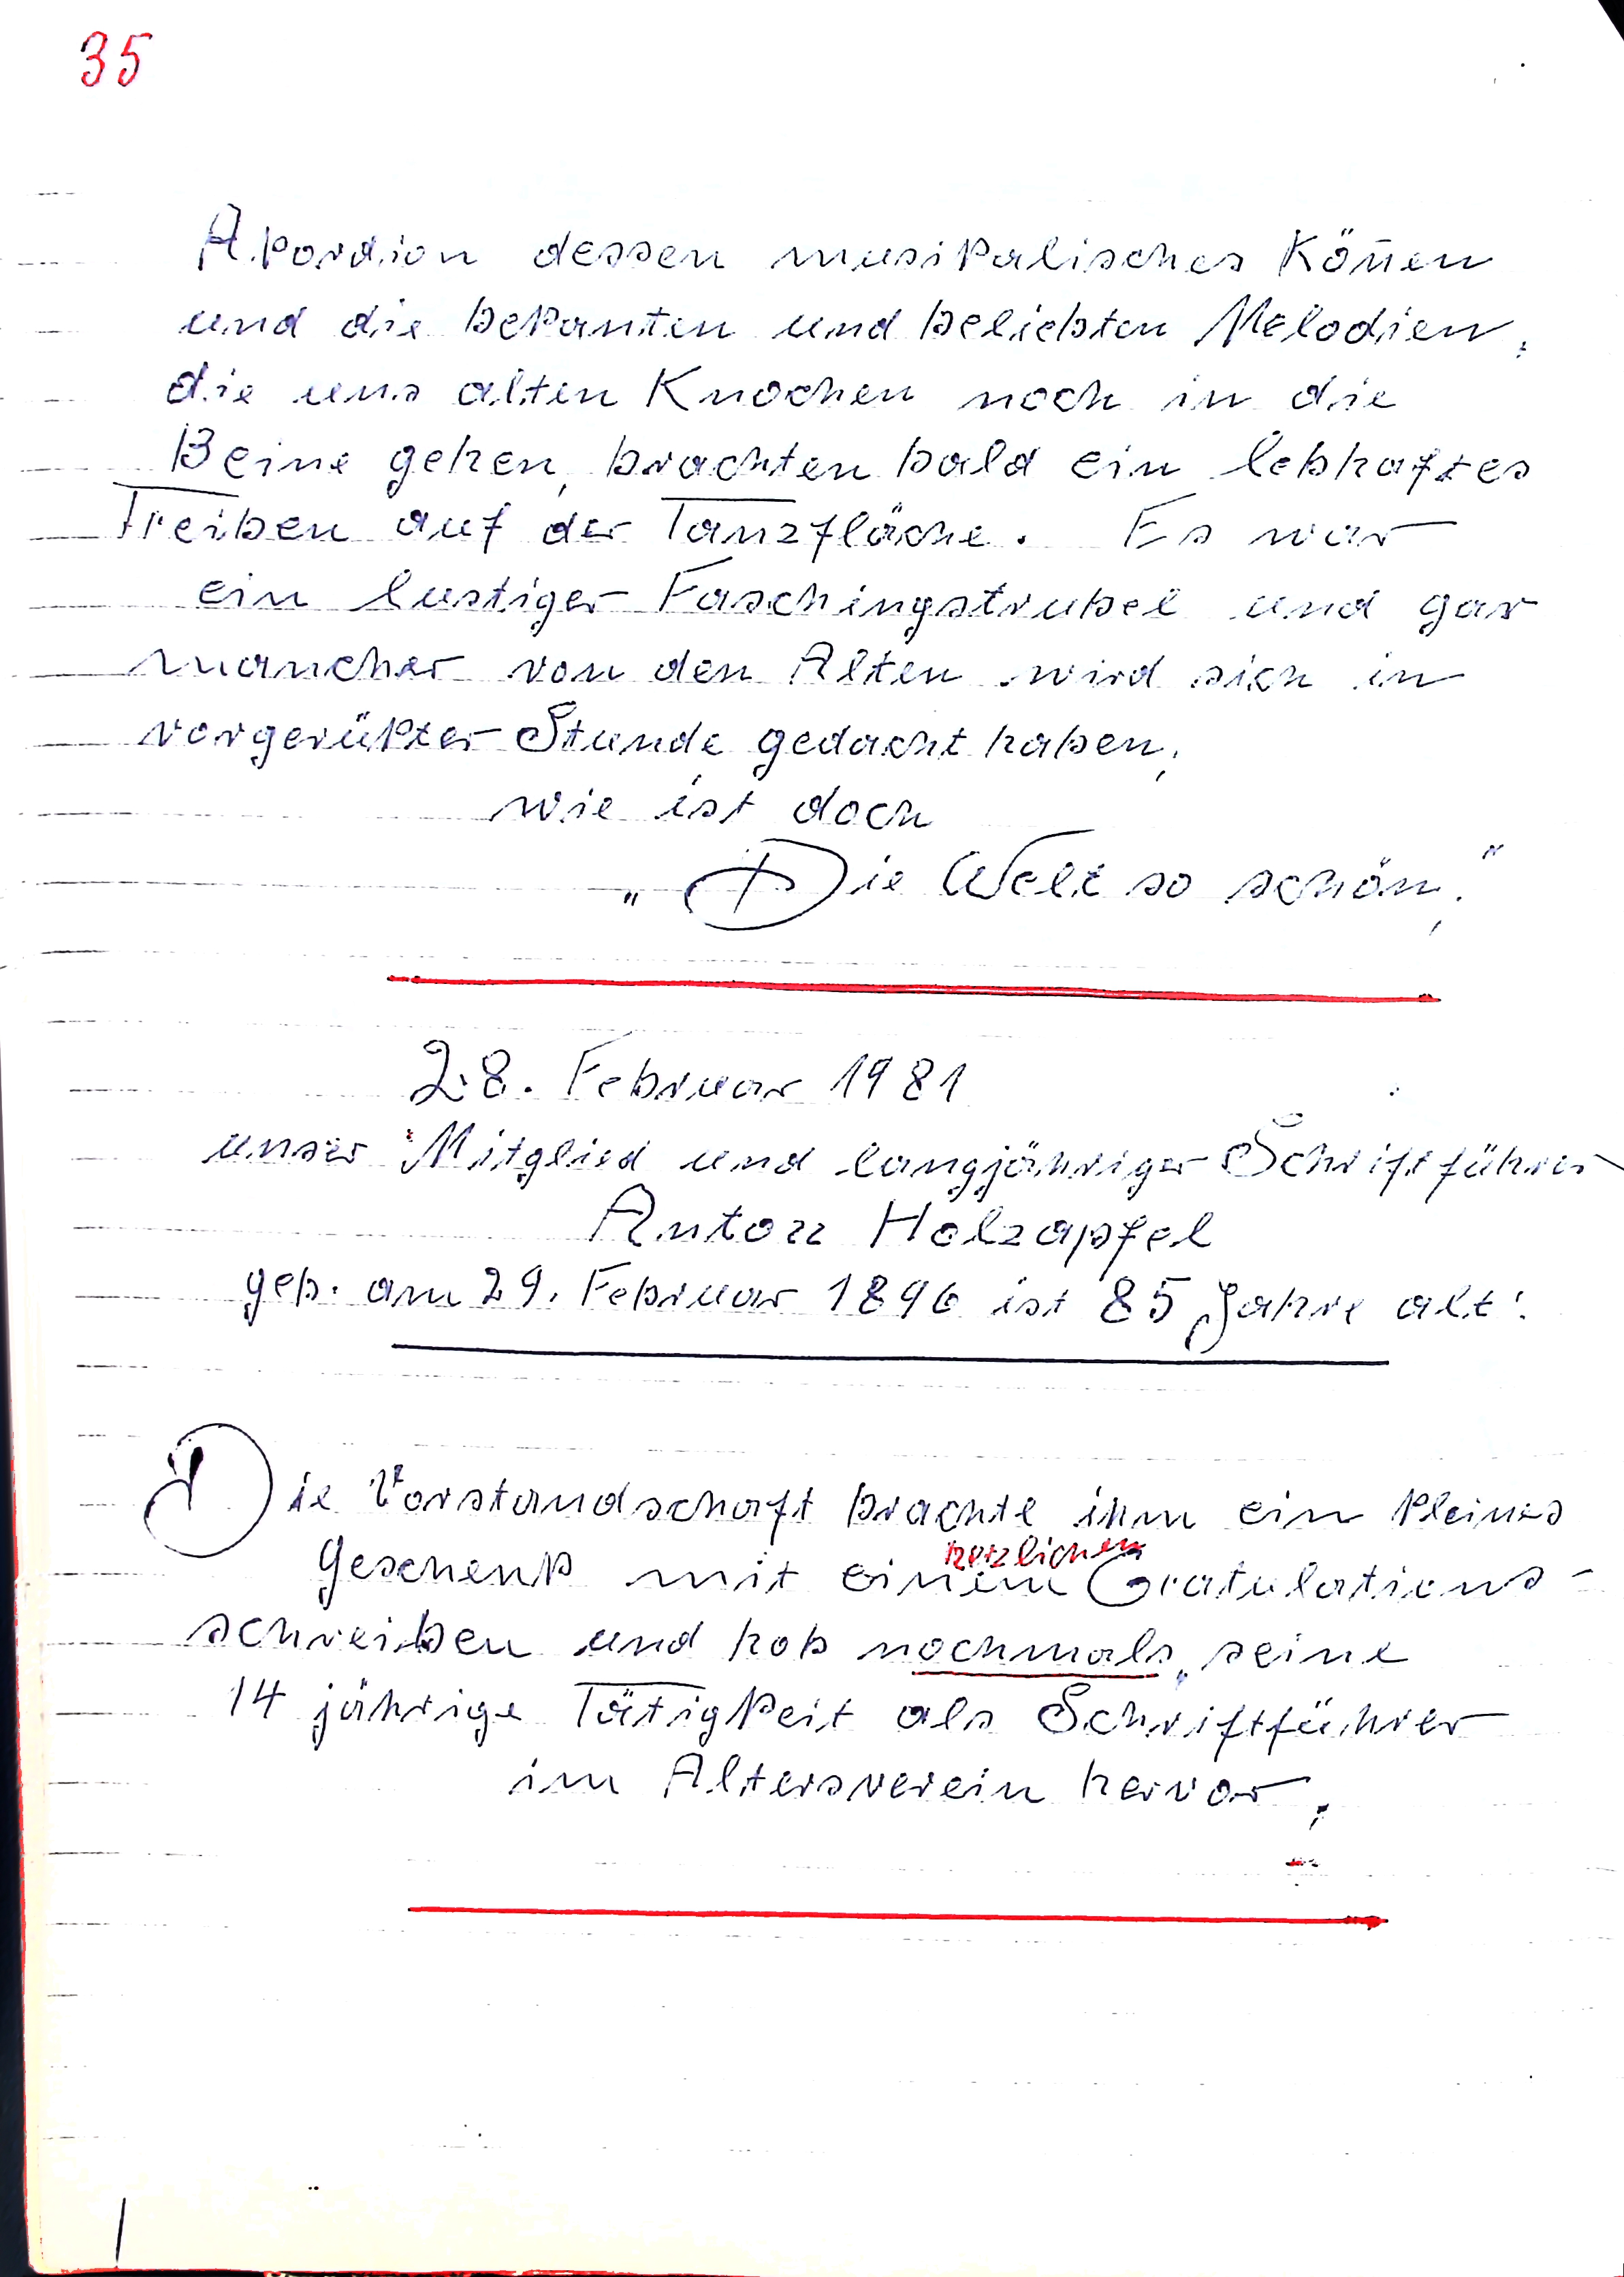 35
Akordion dessen musikalisches Köñen
und die bekanten und beliebten Melodien,
die uns alten Knochen noch in die
Beine gehen, brachten bald ein lebhaftes
Treiben auf der Tanzfläche. Es war
ein lustiger Faschingstrubel und gar
mancher von den Alten wird sich in
vorgerükter Stunde gedacht haben,
wie ist doch
„Die Welt so schön."
28. Februar 1981
unser Mitglied und langjähriger Schriftführer
Anton Holzapfel
geb. am 29. Februar 1896 ist 85 Jahre alt!
Die Vorstandschaft brachte ihm ein kleines
herzlichen
Geschenk mit einem Gratulations-
schreiben und hob nochmals, seine
14 jährige Tätigkeit als Schriftführer
im Altersverein hervor.